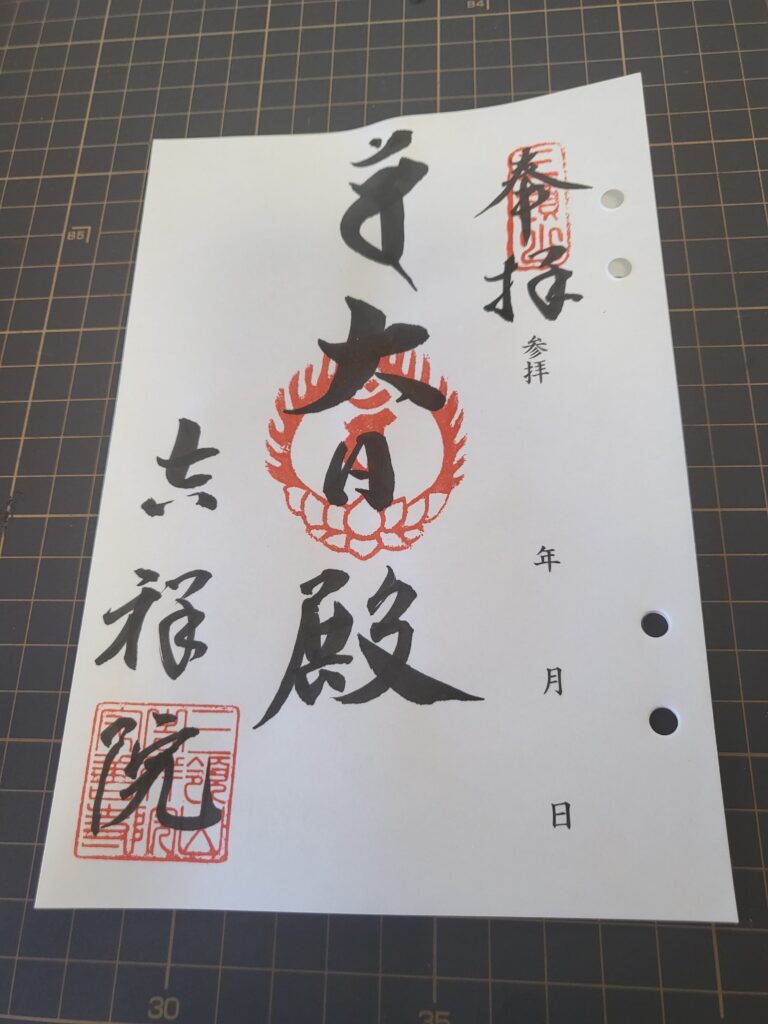 奉拝
参拝 年 月 日
大日殿
吉祥院
84
85
30
35